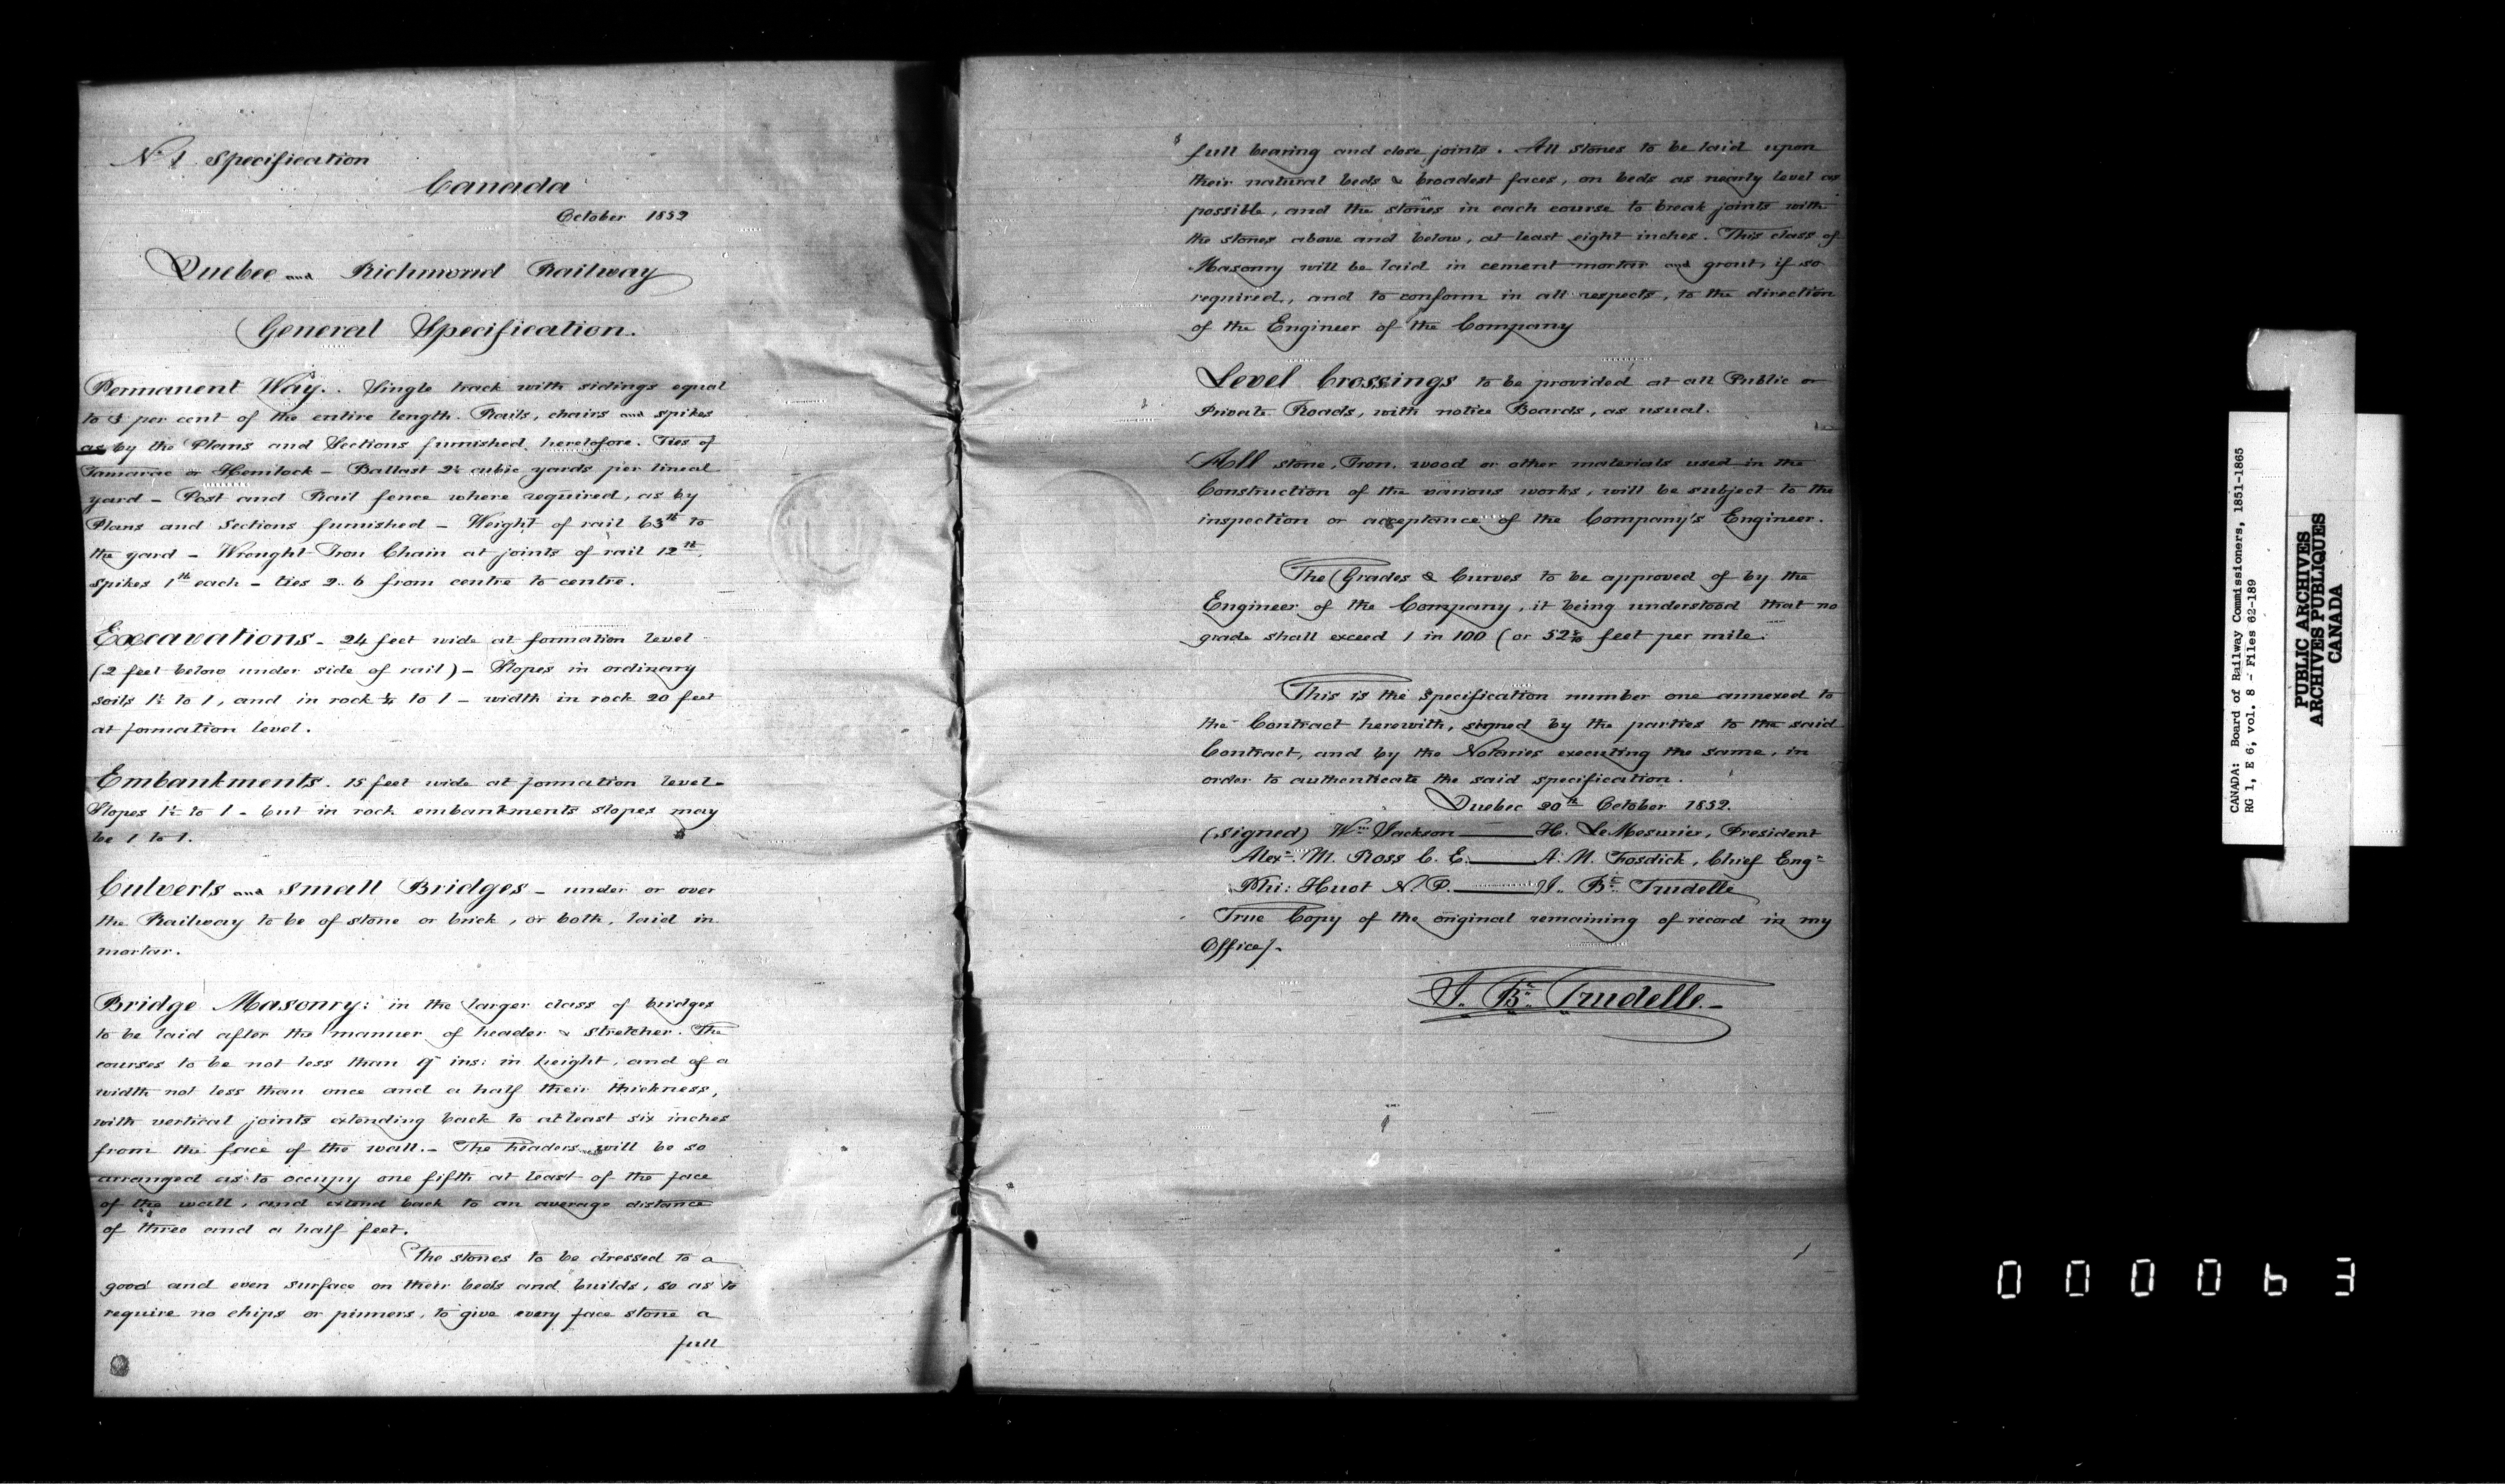 No. 1 Specification
Canada
October 1852
Quebec and Richmond Railway
General Specification.
Permanent Way.. Single track with sidings equal
to 3 per cent of the entire length. Rails, chairs and spikes
as by the Plans and Sections furnished heretofore. Ties of
Tamarac or Hemlock – Ballast 2½ cubic yards per lineal
yard – Post and Rail fence where required, as by
Plans and Sections furnished – Weight of rail 63lb to
the yard – Wrought Iron Chair at joints of rail 12lb,
spikes 1lb each – ties 2..6 from centre to centre.
Excavations – 24 feet wide at formation level
(2 feet below under side of rail) – Slopes in ordinary
soils 1½ to 1, and in rock ¼ to 1 – width in rock 20 feet
at formation level.
Embankments. 15 feet wide at formation level –
Slopes 1½ to 1 – but in rock embankments slopes may
be 1 to 1.
Culverts and small Bridges – under or over
the Railway to be of stone or brick, or both, laid in
mortar.
Bridge Masonry: in the larger class of bridges
to be laid after the manner of header & stretcher. The
courses to be not less than 9 ins: in height, and of a
width not less than once and a half their thickness,
with vertical joints extending back to at least six inches
from the face of the wall. – The headers will be so
arranged as to occupy one fifth at least of the face
of the wall, and extend back to an average distance
of three and a half feet.
The stones to be dressed to a
good and even surface on their beds and builds, so as to
require no chips or pinners, to give every face stone a
full
full bearing and close joints. All stones to be laid upon
their natural beds & broadest faces, on beds as nearly level as
possible, and the stones in each course to break joints with
the stones above and below, at least eight inches. This class of
Masonry will be laid in cement mortar and grout, if so
required, and to conform in all respects, to the direction
of the Engineer of the Company
Level Crossings to be provided at all Public or
Private Roads, with notice Boards, as usual.
All stone, Iron, wood or other materials used in the
Construction of the various works, will be subject to the
inspection or acceptance of the Company's Engineer.
The Grades & Curves to be approved of by the
Engineer of the Company, it being understood that no
grade shall exceed 1 in 100 (or 52 8/10 feet per mile.
This is the specification number one annexed to
the Contract herewith, signed by the parties to the said
Contract, and by the Notaries executing the same, in
order to authenticate the said specification.
Quebec 20th October 1852.
(Signed) Wm Jackson —— H. LeMesurier, President
Alexr. M. Ross C. E. —— A. M. Fosdick, Chief Engr
Phi: Huot N. P. —— J. Bte Trudelle
True Copy of the original remaining of record in my
Office}.
J. Bte Trudelle. –
CANADA: Board of Railway Commissioners, 1851-1865
RG 1, E 6, vol. 8 - Files 62-189
PUBLIC ARCHIVES
ARCHIVES PUBLIQUES
CANADA
000063